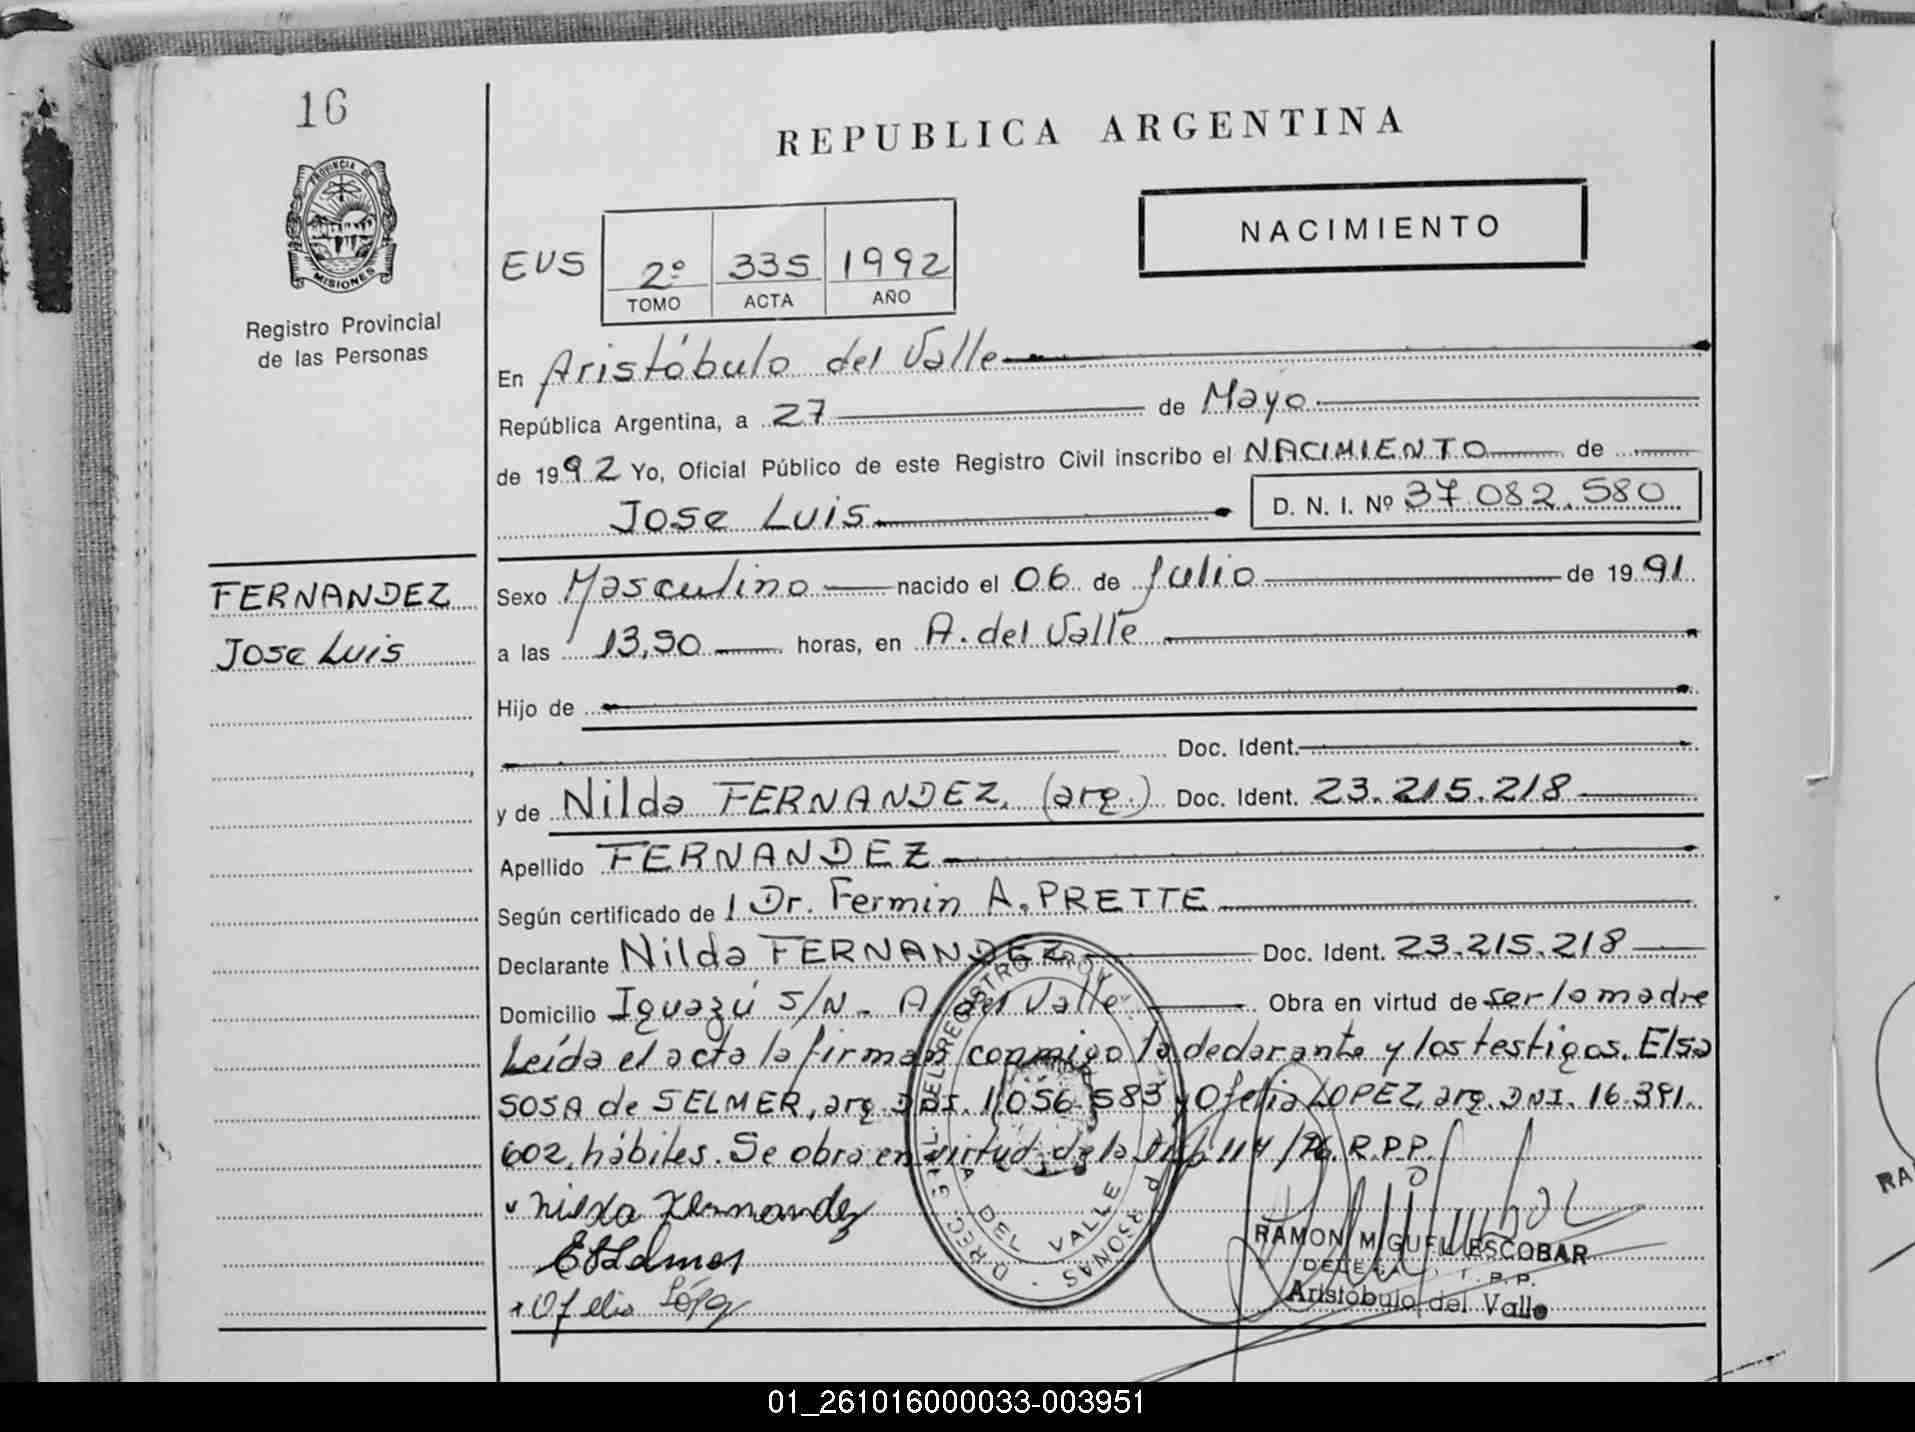 16
PROVINCIA DE
MISIONES
Registro Provincial
de las Personas
REPUBLICA ARGENTINA
NACIMIENTO
EUS 2º 335 1992
TOMO ACTA AÑO
En Aristóbulo del Valle
República Argentina, a 27 de Mayo
de 1992 Yo, Oficial Público de este Registro Civil inscribo el NACIMIENTO de
Jose Luis D. N. I. Nº 37.082.580
FERNANDEZ
Jose Luis
Sexo Masculino nacido el 06 de Julio de 1991
a las 13,50 horas, en A. del Valle
Hijo de
Doc. Ident.
y de Nilda FERNANDEZ, (arg.) Doc. Ident. 23.215.218
Apellido FERNANDEZ
Según certificado de 1 Dr. Fermin A. PRETTE
Declarante Nilda FERNANDEZ Doc. Ident. 23.215.218
Domicilio Iguazú S/N - A. del Valle Obra en virtud de ser la madre
Leída el acta la firman conmigo la declarante y los testigos. Elsa
SOSA de SELMER, arg. DNI. 11.056.583 y Ofelia LOPEZ, arg. DNI. 16.391.
602, hábiles. Se obra en virtud de la 114/76. R.P.P.
Nilda Fernandez
Ofelia López
A. DEL VALLE
RAMON MIGUEL ESCOBAR
R.P.P.
Aristóbulo del Valle
RA
01_261016000033-003951